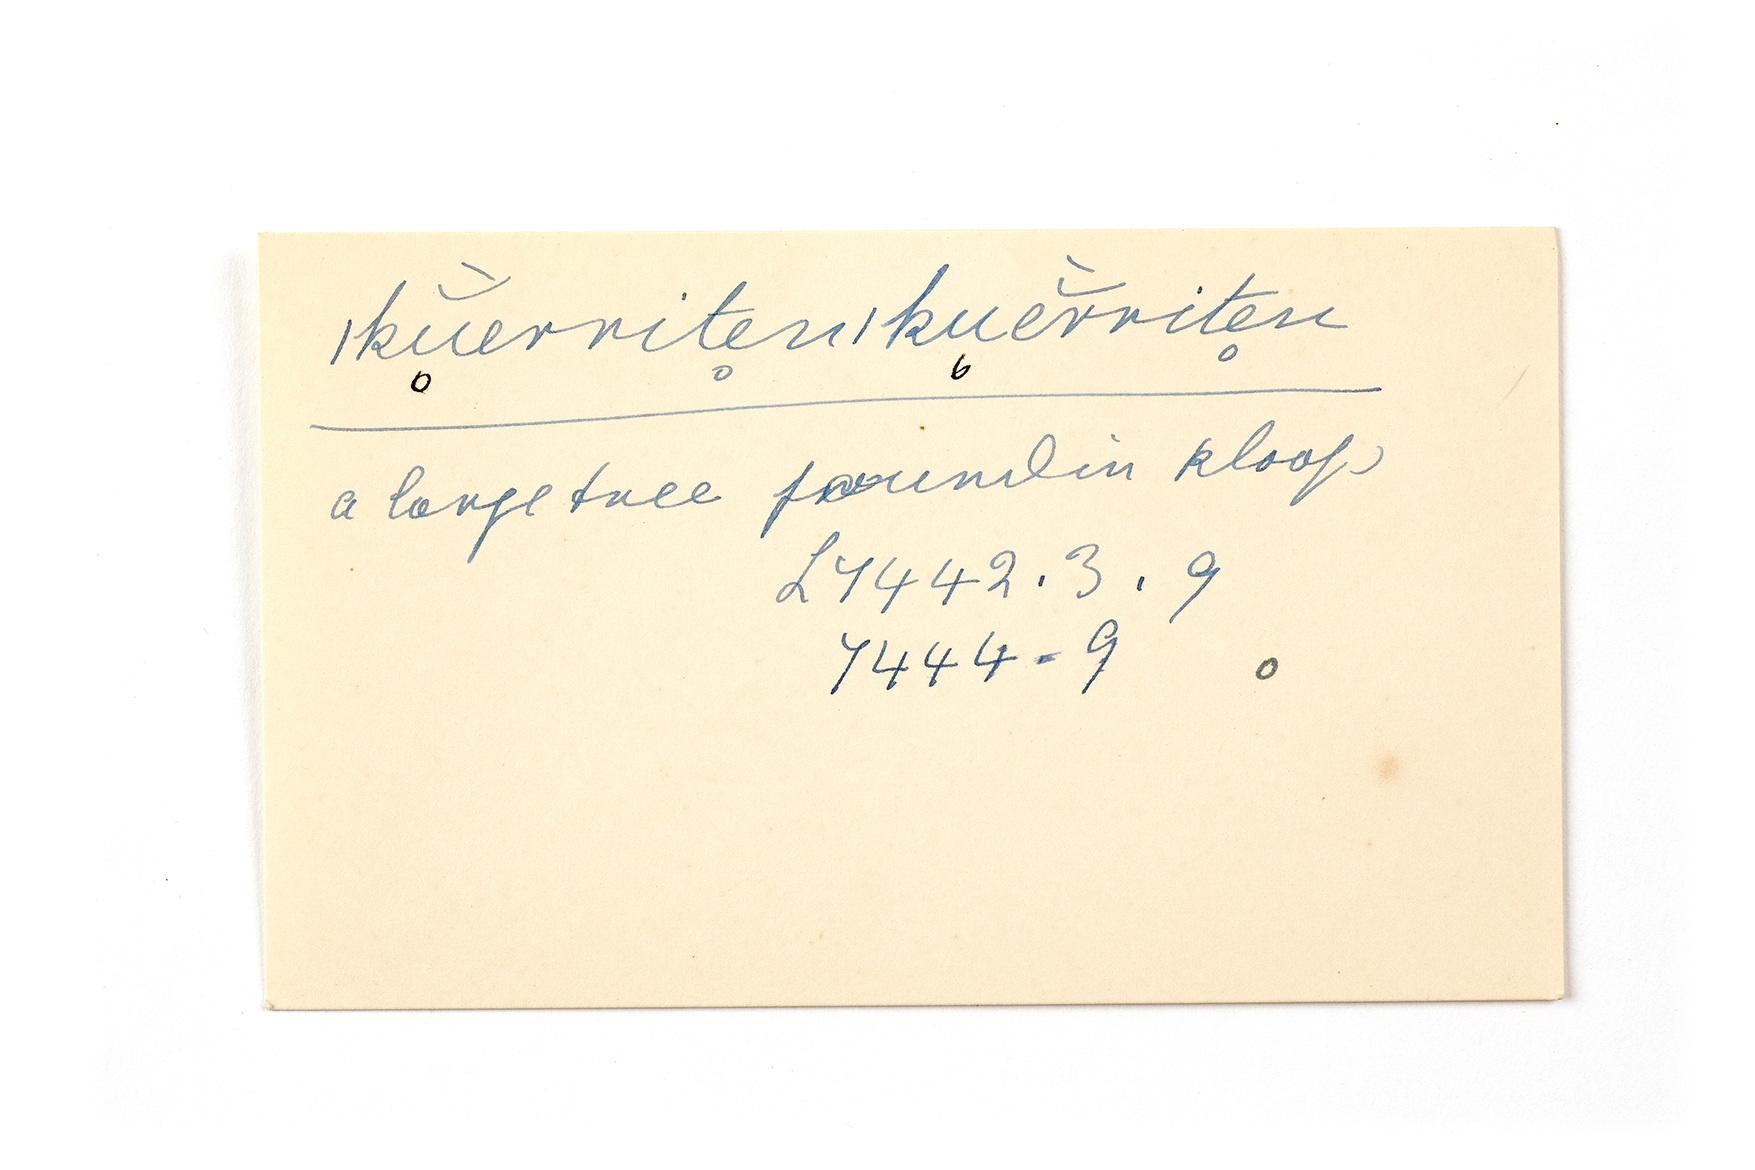 |kù̥̆errite̥n|ku̥ĕ̀rrite̥n
a large tree found in kloofs
L7442.3.9
7444-9 o